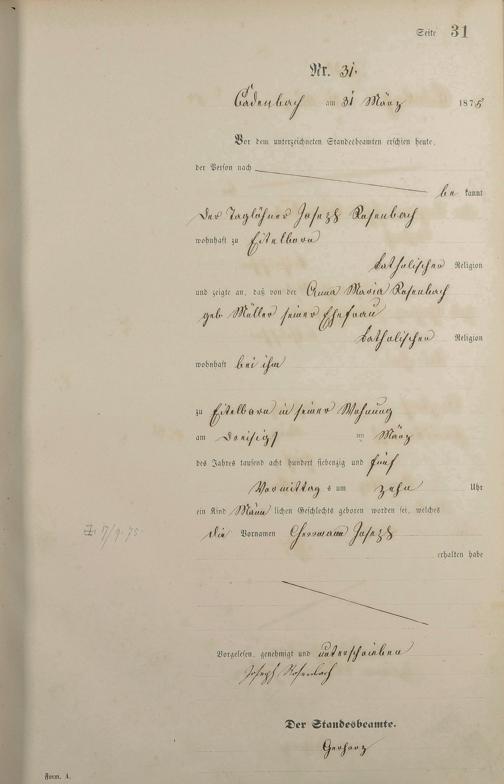 Seite 31
Nr. 31.
Cadenbach am 31 März 1875
Vor dem unterzeichneten Standesbeamten erschien heute,
der Person nach
be kannt
der Taglöhner Joseph Rosenbach
wohnhaft zu Eitelborn
katholischer Religion
und zeigte an, daß von der Anna Maria Rosenbach
geb Müller seiner Ehefrau
katholischer Religion
wohnhaft bei ihm
zu Eitelborn in seiner Wohnung
am dreisigst im März
des Jahres tausend acht hundert siebenzig und fünf
Vormittag s um zehn Uhr
ein Kind Männ lichen Geschlechts geboren worden sei, welches
die Vornamen Herrmann Joseph
erhalten habe
7/9.75
Vorgelesen, genehmigt und unterschrieben
Joseph Rosenbach
Der Standesbeamte.
Gerharz
Form. A.